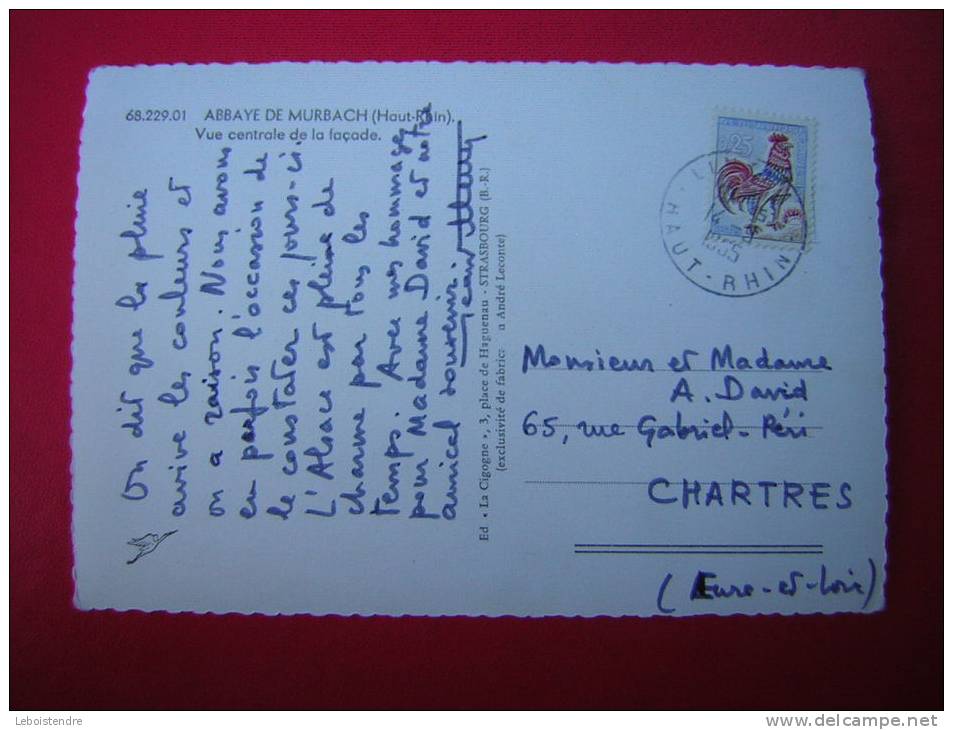 68.229.01 ABBAYE DE MURBACH (Haut-Rhin).
Vue centrale de la façade.
On dit que la pluie
avive les couleurs et
on a raison. Nous avons
eu parfois l'occasion de
le constater ces jours-ci.
L'Alsace est pleine de
charme par tous les
temps. Avec mes hommages
pour Madame David et notre
amical souvenir.
Ed « La Cigogne », 3, place de Haguenau - STRASBOURG (B.-R.)
(exclusivité de fabric André Leconte)
0,25
HAUT-RHIN
14
Monsieur et Madame
A. David
65, rue Gabriel-Péri
CHARTRES
(Eure-et-Loir)
Leboistendre
www.delcampe.net